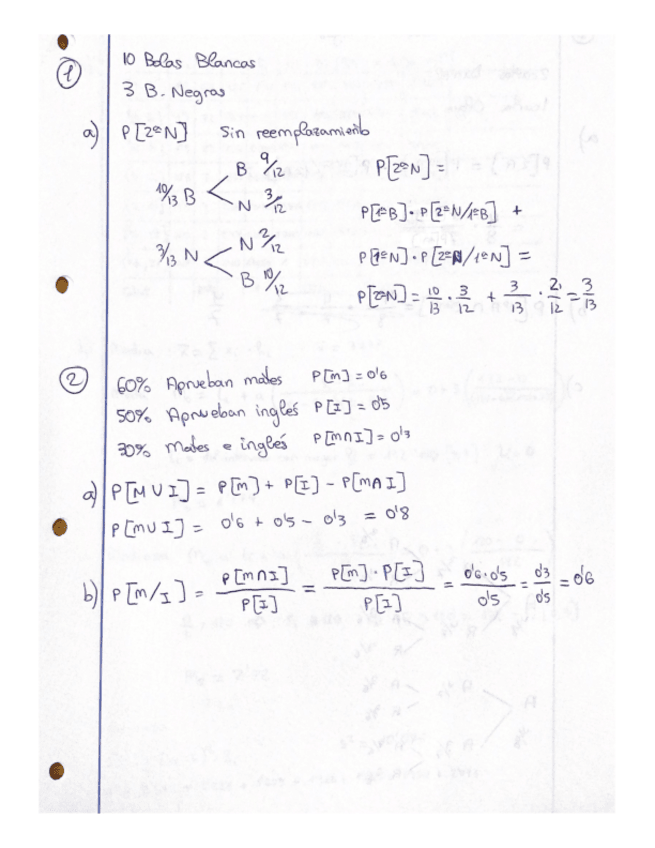 1
10 Bolas Blancas
3 B. Negras
a) P[2ºN] Sin reemplazamiento
10/13 B
B 9/12
N 3/12
3/13 N
N 2/12
B 10/12
P[2ºN] =
P[1ºB]·P[2ºN/1ºB] +
P[1ºN]·P[2ºN/1ºN] =
P[2ºN] = 10/13 · 3/12 + 3/13 · 2/12 = 3/13
2
60% Aprueban mates P[M] = 0'6
50% Aprueban inglés P[I] = 0'5
30% Mates e inglés P[M∩I] = 0'3
a) P[M∪I] = P[M] + P[I] - P[M∩I]
P[M∪I] = 0'6 + 0'5 - 0'3 = 0'8
b) P[M/I] = P[M∩I]/P[I] = P[M]·P[I]/P[I] = 0'6·0'5/0'5 = 0'3/0'5 = 0'6